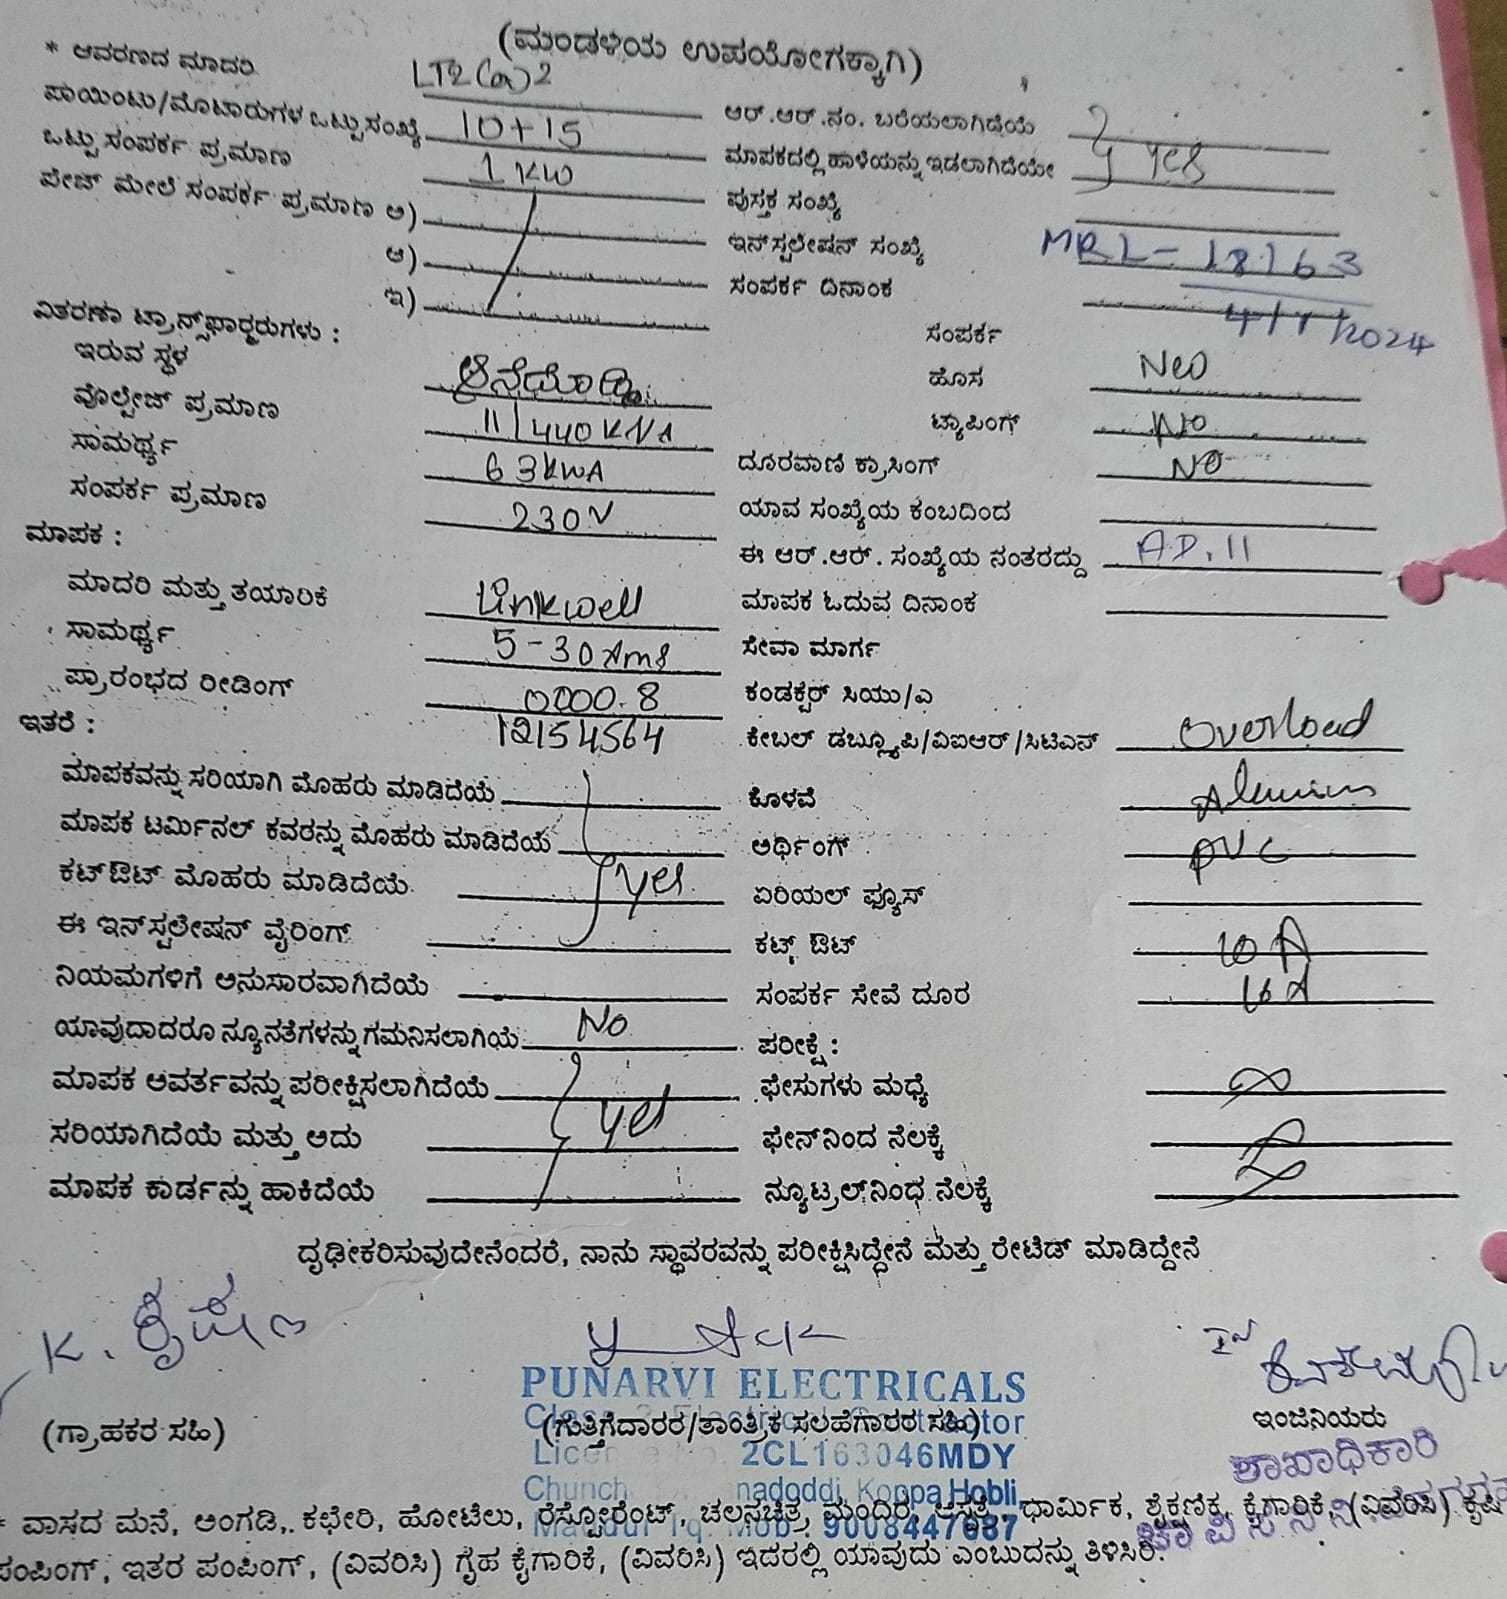 (ಮಂಡಳಿಯ ಉಪಯೋಗಕ್ಕಾಗಿ)
* ಆವರಣದ ಮಾದರಿ LT2(a)2
ಪಾಯಿಂಟು/ಮೊಟಾರುಗಳ ಒಟ್ಟು ಸಂಖ್ಯೆ 10+15
ಒಟ್ಟು ಸಂಪರ್ಕ ಪ್ರಮಾಣ 1 KW
ಪೇಜ್ ಮೇಲೆ ಸಂಪರ್ಕ ಪ್ರಮಾಣ ಅ)
ಆ)
ಇ)
ವಿತರಣಾ ಟ್ರಾನ್ಸ್‌ಫಾರ್‍ಮರುಗಳು :
ಇರುವ ಸ್ಥಳ
ವೊಲ್ಟೇಜ್ ಪ್ರಮಾಣ 11/440KVA
ಸಾಮರ್ಥ್ಯ 63KWA
ಸಂಪರ್ಕ ಪ್ರಮಾಣ 230V
ಮಾಪಕ :
ಮಾದರಿ ಮತ್ತು ತಯಾರಿಕೆ Linkwell
ಸಾಮರ್ಥ್ಯ 5-30Ams
ಪ್ರಾರಂಭದ ರೀಡಿಂಗ್ 0000.8
ಇತರೆ : 12154564
ಮಾಪಕವನ್ನು ಸರಿಯಾಗಿ ಮೊಹರು ಮಾಡಿದೆಯೆ
ಮಾಪಕ ಟರ್ಮಿನಲ್ ಕವರನ್ನು ಮೊಹರು ಮಾಡಿದೆಯೆ
ಕಟ್‌ಔಟ್ ಮೊಹರು ಮಾಡಿದೆಯೆ yes
ಈ ಇನ್‌ಸ್ಟಲೇಷನ್ ವೈರಿಂಗ್
ನಿಯಮಗಳಿಗೆ ಅನುಸಾರವಾಗಿದೆಯೆ
ಯಾವುದಾದರೂ ನ್ಯೂನತೆಗಳನ್ನು ಗಮನಿಸಲಾಗಿಯೆ No
ಮಾಪಕ ಆವರ್ತವನ್ನು ಪರೀಕ್ಷಿಸಲಾಗಿದೆಯೆ
ಸರಿಯಾಗಿದೆಯೆ ಮತ್ತು ಅದು yes
ಮಾಪಕ ಕಾರ್ಡನ್ನು ಹಾಕಿದೆಯೆ
ಆರ್.ಆರ್.ನಂ. ಬರೆಯಲಾಗಿದೆಯೆ
ಮಾಪಕದಲ್ಲಿ ಹಾಳೆಯನ್ನು ಇಡಲಾಗಿದೆಯೇ yes
ಪುಸ್ತಕ ಸಂಖ್ಯೆ
ಇನ್‌ಸ್ಟಲೇಷನ್ ಸಂಖ್ಯೆ MRL-18163
ಸಂಪರ್ಕ ದಿನಾಂಕ 4/1/2024
ಸಂಪರ್ಕ
ಹೊಸ New
ಟ್ಯಾಪಿಂಗ್ No
ದೂರವಾಣಿ ಕ್ರಾಸಿಂಗ್ NO
ಯಾವ ಸಂಖ್ಯೆಯ ಕಂಬದಿಂದ
ಈ ಆರ್.ಆರ್. ಸಂಖ್ಯೆಯ ನಂತರದ್ದು AD.11
ಮಾಪಕ ಓದುವ ದಿನಾಂಕ
ಸೇವಾ ಮಾರ್ಗ
ಕಂಡಕ್ಟರ್ ಸಿಯು/ಎ
ಕೇಬಲ್ ಡಬ್ಲ್ಯೂಪಿ/ವಿಐಆರ್/ಸಿಟಿಎನ್ overload
ಕೊಳವೆ
ಅರ್ಥಿಂಗ್ PVC
ಏರಿಯಲ್ ಫ್ಯೂಸ್
ಕಟ್ಟ್ ಔಟ್ 10 A
ಸಂಪರ್ಕ ಸೇವೆ ದೂರ 16 A
ಪರೀಕ್ಷೆ :
ಫೇಸುಗಳು ಮಧ್ಯೆ
ಫೇನ್‌ನಿಂದ ನೆಲಕ್ಕೆ
ನ್ಯೂಟ್ರಲ್‌ನಿಂಧ ನೆಲಕ್ಕೆ
ದೃಢೀಕರಿಸುವುದೇನೆಂದರೆ, ನಾನು ಸ್ಥಾವರವನ್ನು ಪರೀಕ್ಷಿಸಿದ್ದೇನೆ ಮತ್ತು ರೇಟೆಡ್ ಮಾಡಿದ್ದೇನೆ
PUNARVI ELECTRICALS
(ಗ್ರಾಹಕರ ಸಹಿ) (ಗುತ್ತಿಗೆದಾರರ/ತಾಂತ್ರಿಕ ಸಲಹೆಗಾರರ ಸಹಿ) ಇಂಜಿನಿಯರು
ಶಾಖಾಧಿಕಾರಿ
2CL163046MDY
Koppa Hobli
9008447687
* ವಾಸದ ಮನೆ, ಅಂಗಡಿ, ಕಛೇರಿ, ಹೋಟೆಲು, ರೆಸ್ಟೋರೆಂಟ್, ಚಲನಚಿತ್ರ ಮಂದಿರ, ಆಸ್ಪತ್ರೆ, ಧಾರ್ಮಿಕ, ಶೈಕ್ಷಣಿಕ, ಕೈಗಾರಿಕೆ, (ವಿವರಿಸಿ) ಕೃಷಿ
ಪಂಪಿಂಗ್, ಇತರ ಪಂಪಿಂಗ್, (ವಿವರಿಸಿ) ಗೃಹ ಕೈಗಾರಿಕೆ, (ವಿವರಿಸಿ) ಇದರಲ್ಲಿ ಯಾವುದು ಎಂಬುದನ್ನು ತಿಳಿಸಿರಿ.